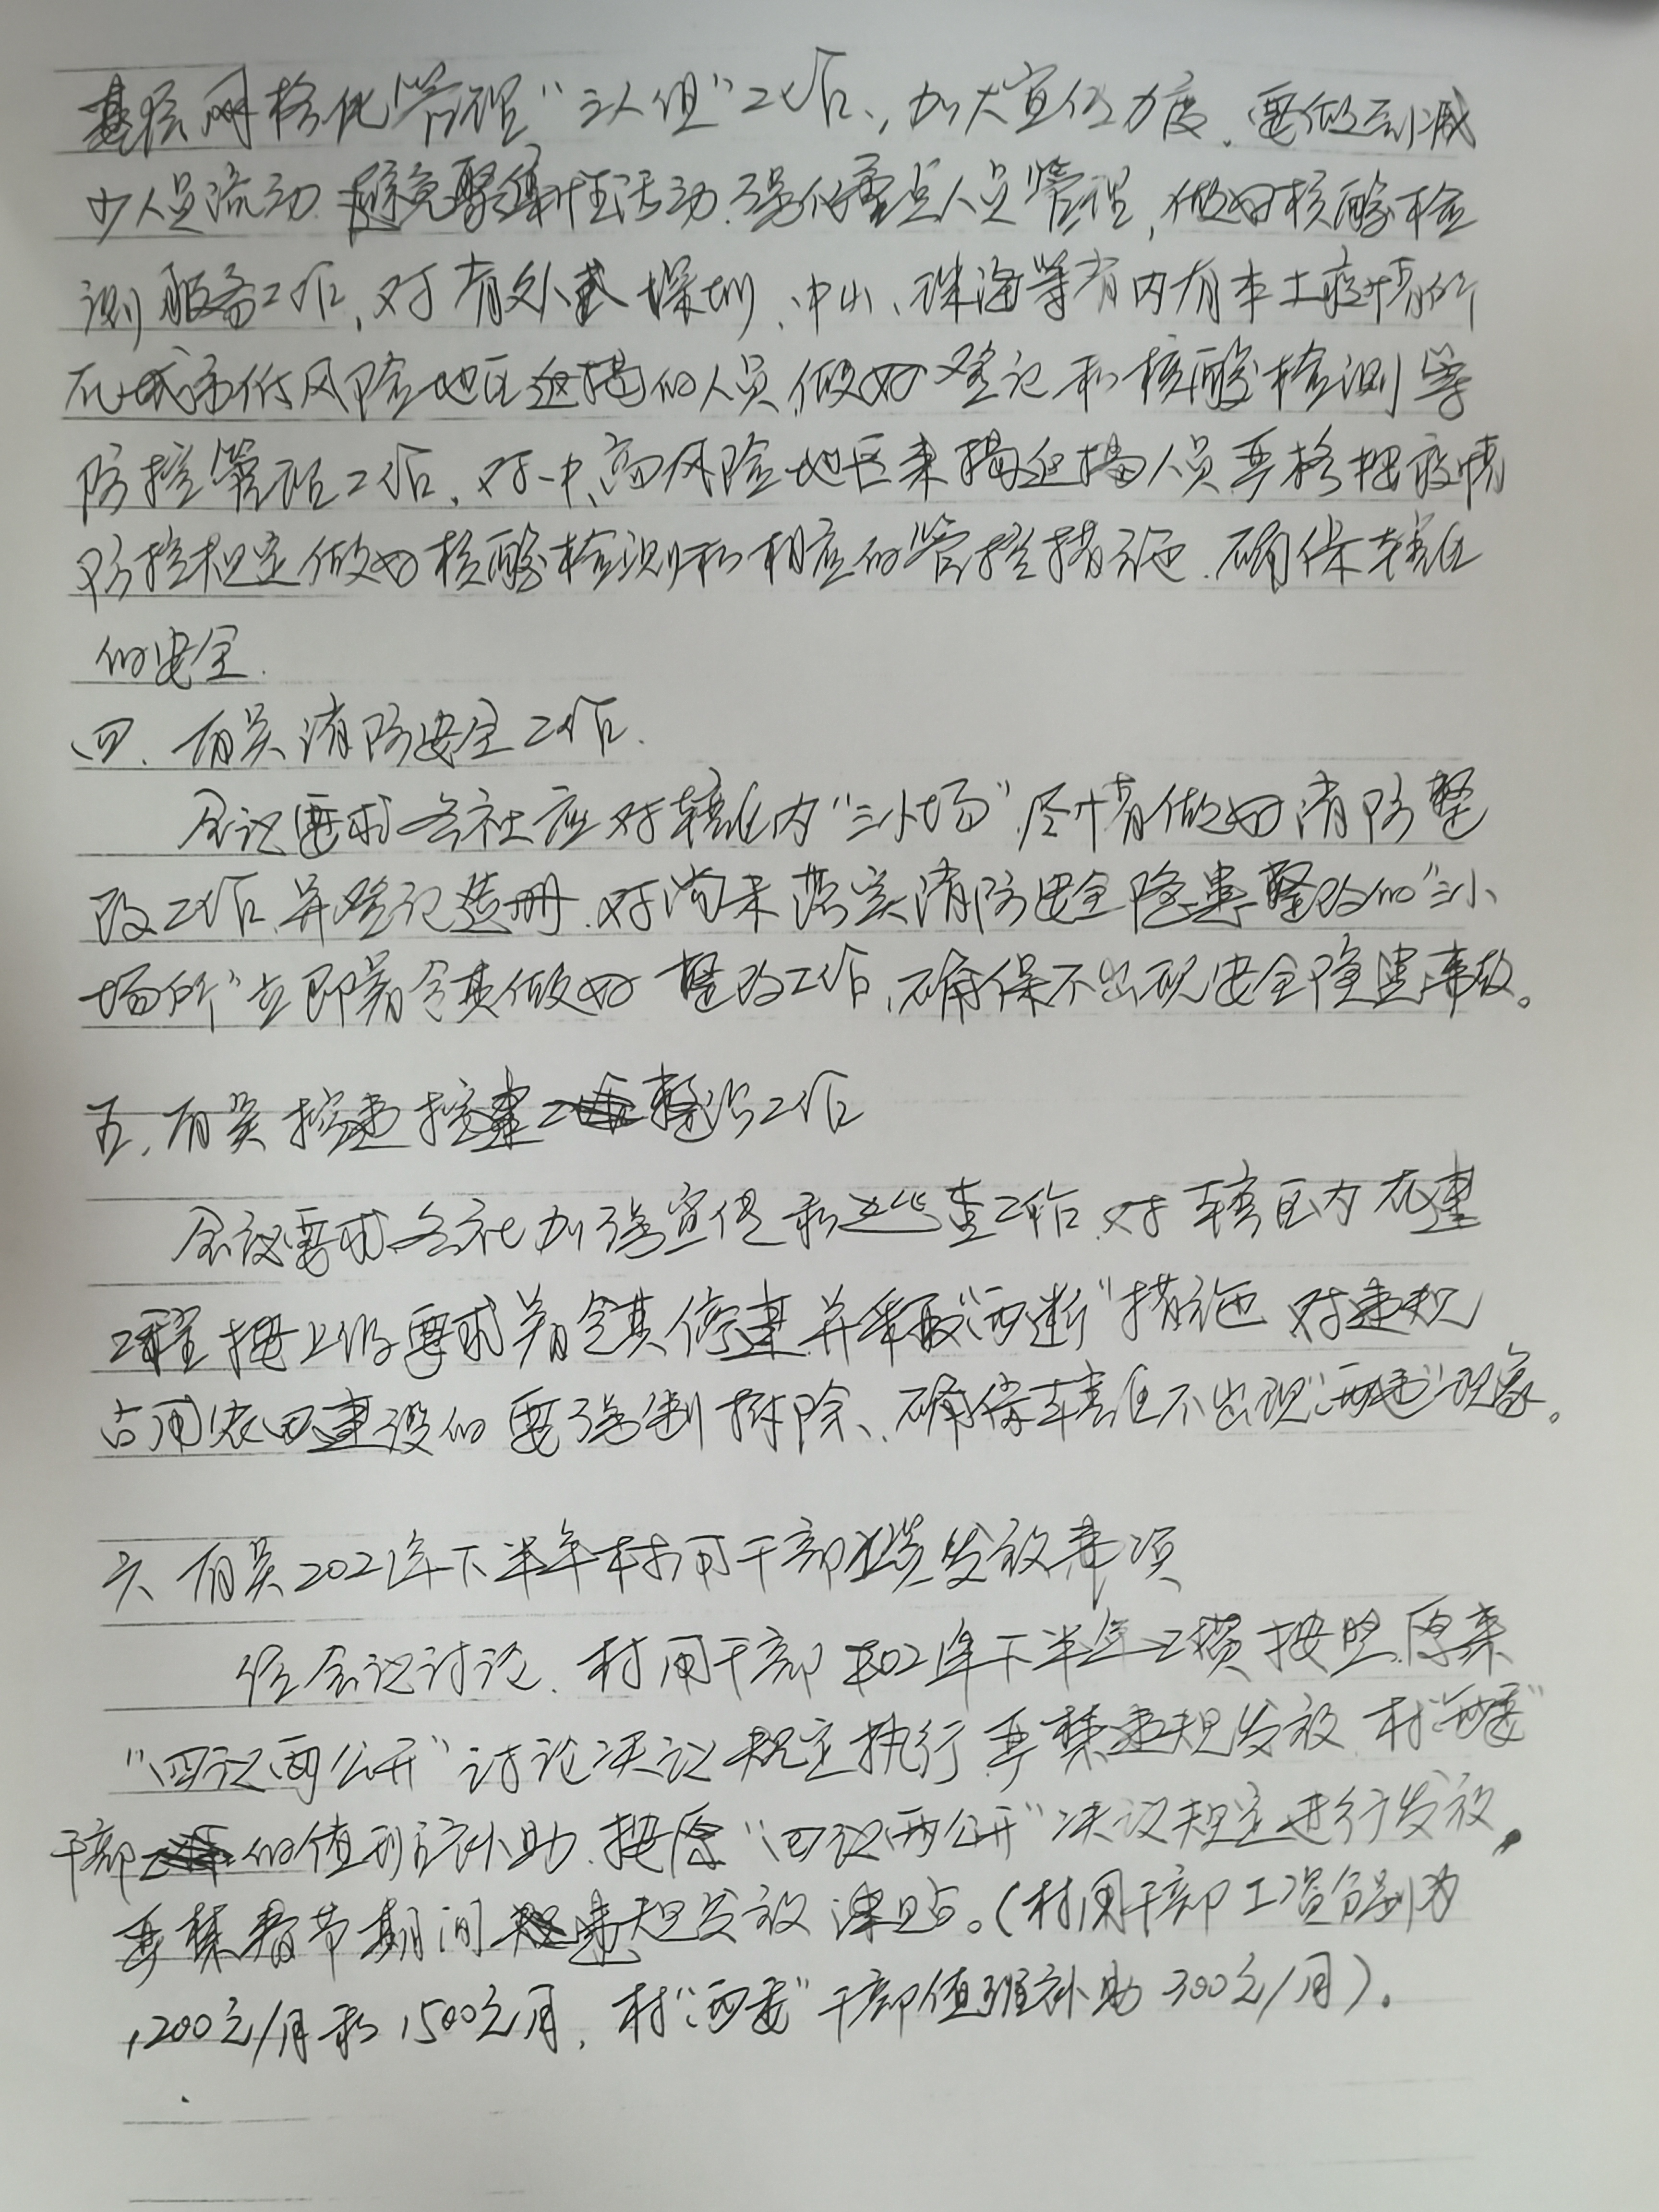 基层网格化管理“三人组”工作，加大宣传力度，要做到减
少人员流动，避免聚集性活动，强化重点人员管理，做好核酸检
测服务工作，对省外或深圳、中山、珠海等省内有本土疫情所
在城市低风险地区返揭的人员，做好登记和核酸检测等
防控管理工作，对中、高风险地区来揭返揭人员严格按疫情
防控规定做好核酸检测和相应的管控措施，确保辖区
的安全。
四、有关消防安全工作.
会议要求各社应对辖区内“三小场”尽情做好消防整
改工作，并登记造册，对尚未落实消防安全隐患整改的“三小
场所”立即着令其做好整改工作，确保不出现安全隐患事故。
五、有关控违控建整治工作
会议要求各社加强宣传和巡查工作，对辖区内在建
工程按上级要求着令其停建，并采取“两断”措施，对违规
占用农田建设的要强制拆除，确保辖区不出现“两违”现象。
六、有关2021年下半年村用干部工资发放事项
经会议讨论，村用干部2021年下半年工资按照原来
“四议两公开”讨论决议规定执行，严禁违规发放，村“两委”
干部的值班补助，按原“四议两公开”决议规定进行发放，
严禁春节期间违规发放津贴。(村用干部工资分别为
1200元/月和1500元月，村“两委”干部值班补助300元/月)。